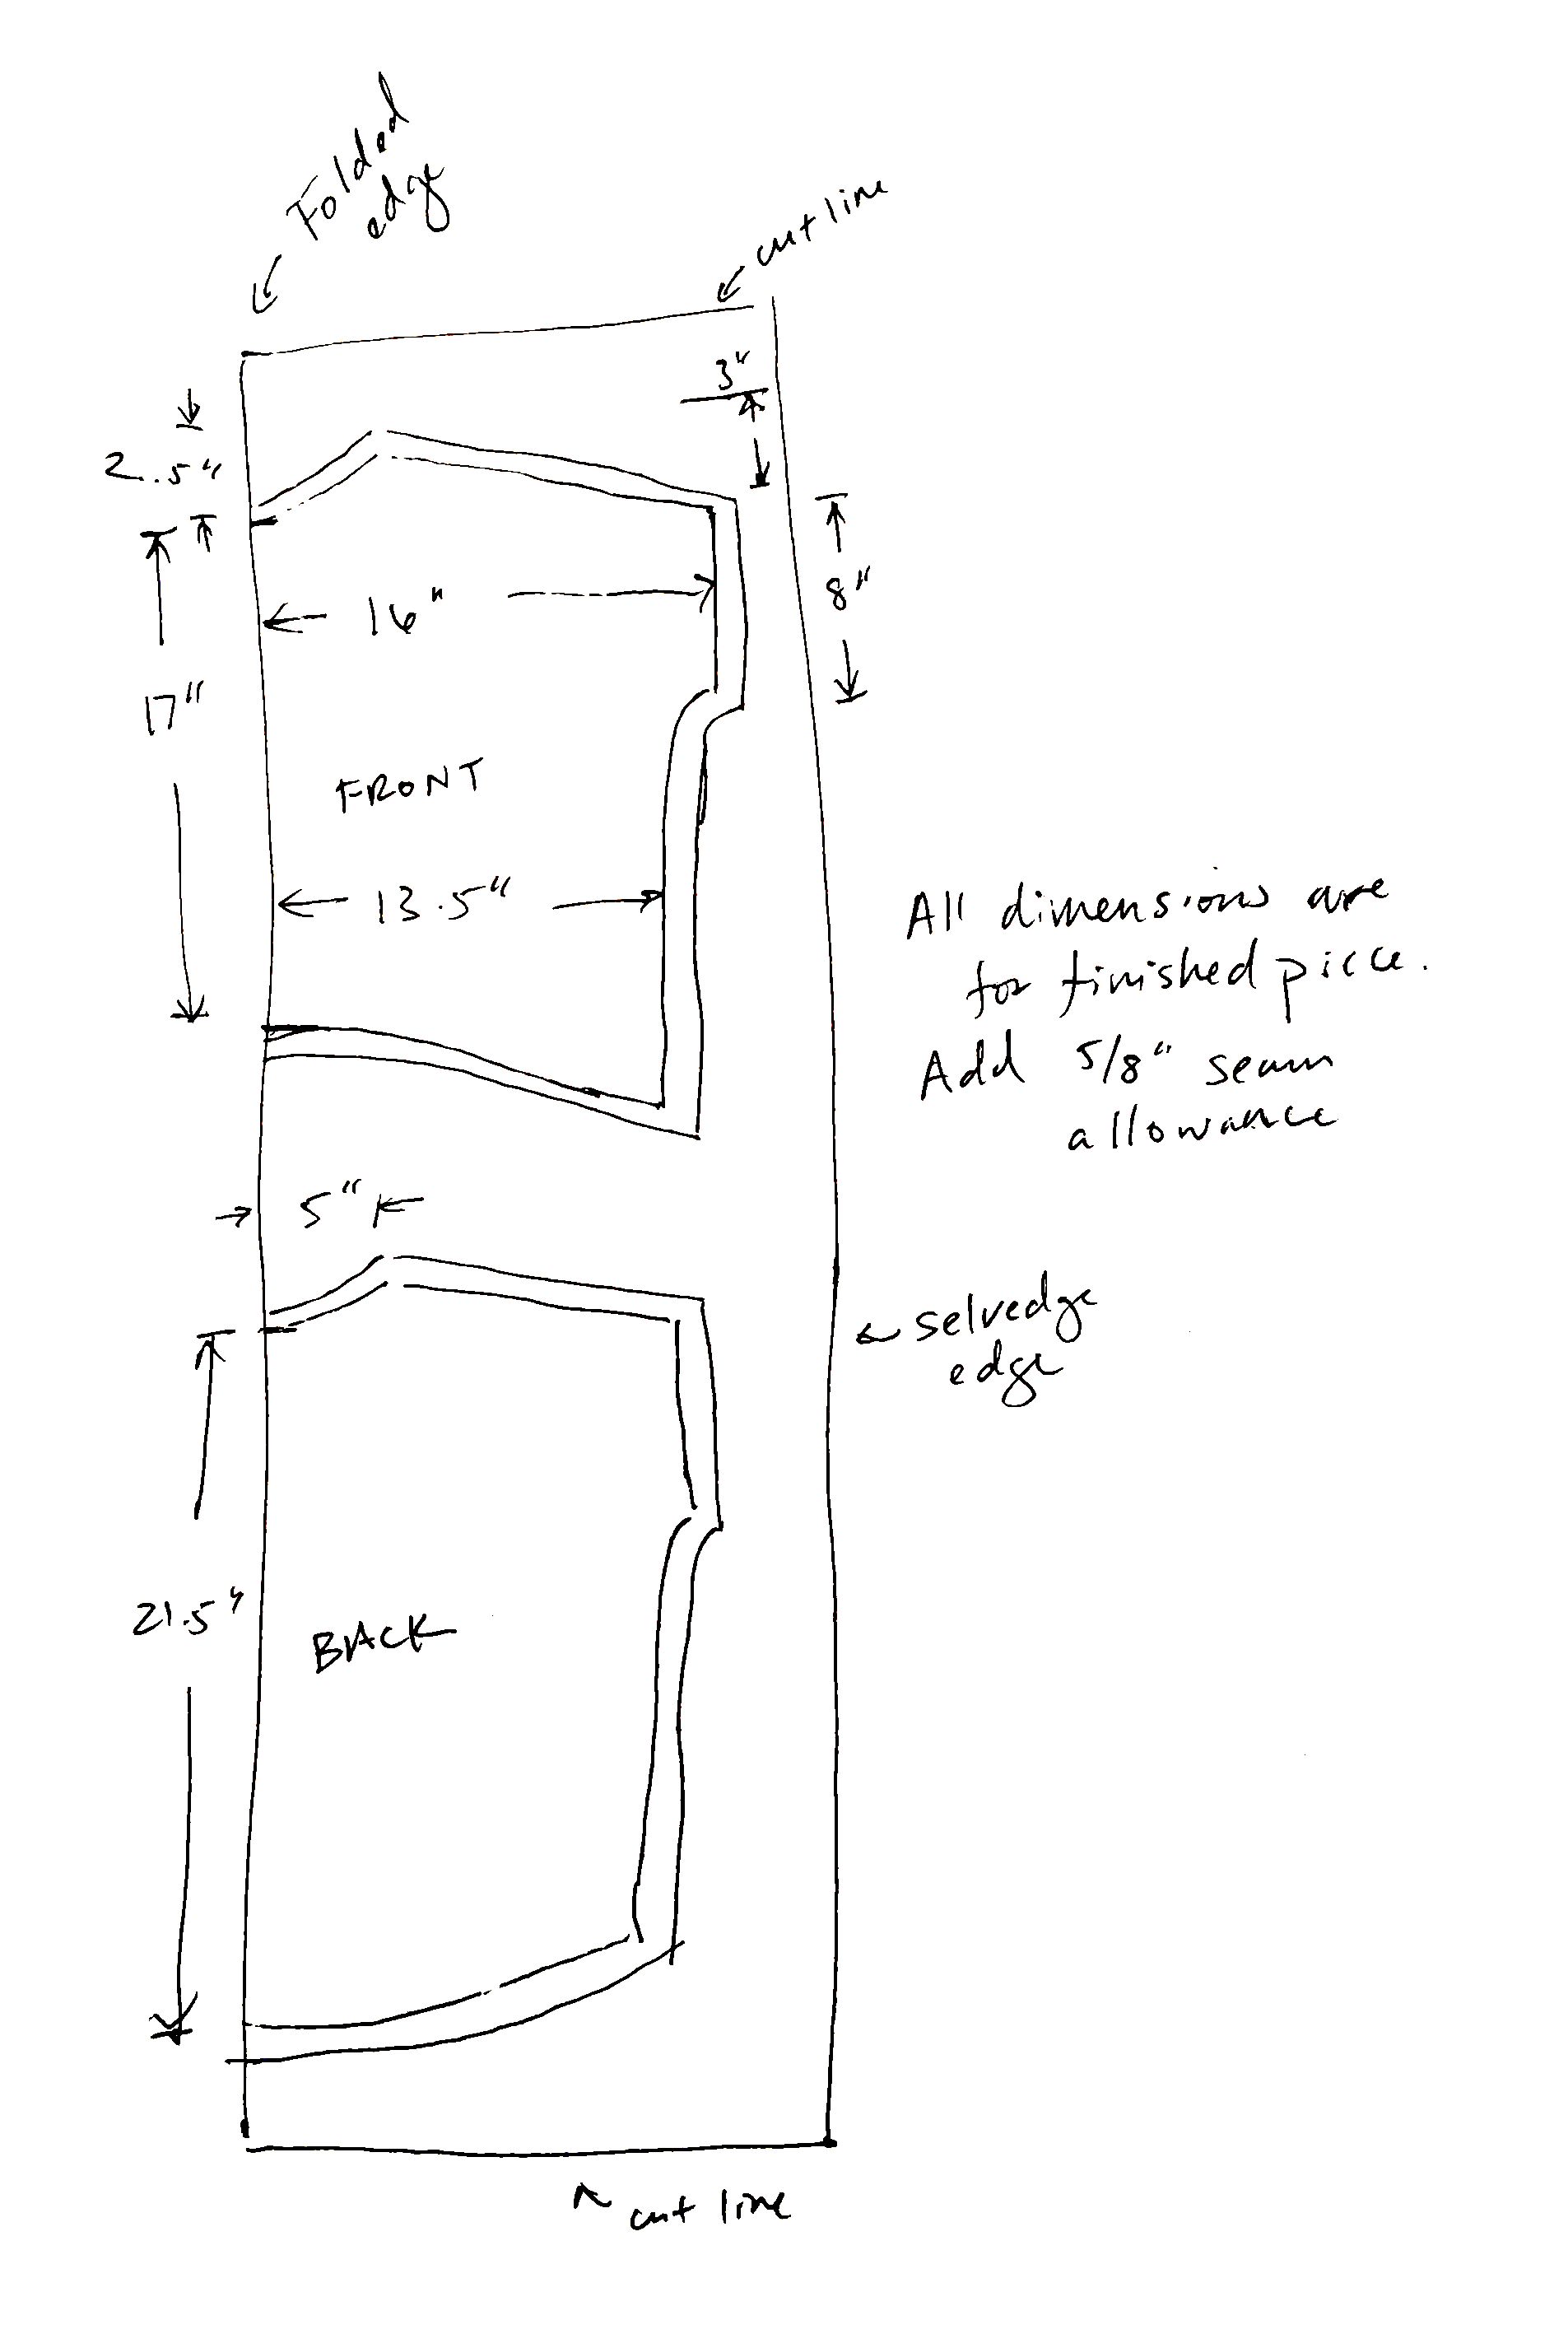 Folded
edge
cut line
3"
2.5"
16"
8"
17"
FRONT
13.5"
All dimensions are
for finished piece.
Add 5/8" seam
allowance
5"
selvedge
edge
21.5"
BACK
cut line